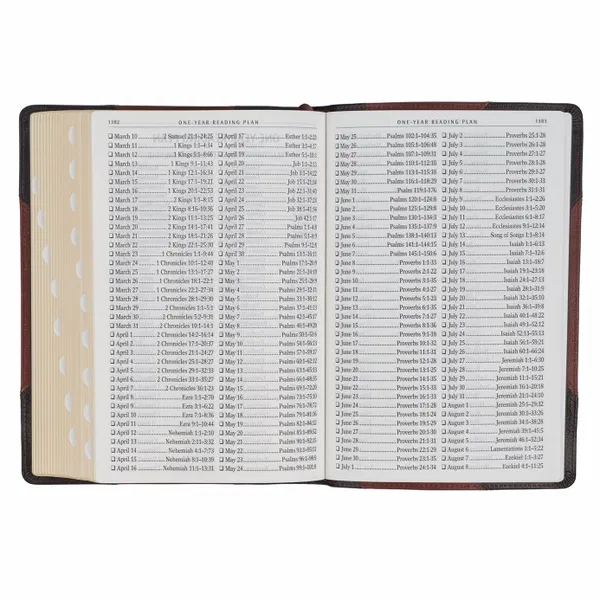 1382 ONE-YEAR READING PLAN
March 10 2 Samuel 21:1–24:25
March 11 1 Kings 1:1–4:34
March 12 1 Kings 5:1–8:66
March 13 1 Kings 9:1–11:43
March 14 1 Kings 12:1–16:34
March 15 1 Kings 17:1–19:21
March 16 1 Kings 20:1–22:53
March 17 2 Kings 1:1–8:15
March 18 2 Kings 8:16–10:36
March 19 2 Kings 11:1–13:25
March 20 2 Kings 14:1–17:41
March 21 2 Kings 18:1–21:26
March 22 2 Kings 22:1–25:30
March 23 1 Chronicles 1:1–9:44
March 24 1 Chronicles 10:1–12:40
March 25 1 Chronicles 13:1–17:27
March 26 1 Chronicles 18:1–22:1
March 27 1 Chronicles 22:2–27:34
March 28 1 Chronicles 28:1–29:30
March 29 2 Chronicles 1:1–5:1
March 30 2 Chronicles 5:2–9:31
March 31 2 Chronicles 10:1–14:1
April 1 2 Chronicles 14:2–16:14
April 2 2 Chronicles 17:1–20:37
April 3 2 Chronicles 21:1–24:27
April 4 2 Chronicles 25:1–28:27
April 5 2 Chronicles 29:1–32:33
April 6 2 Chronicles 33:1–35:27
April 7 2 Chronicles 36:1–23
April 8 Ezra 1:1–2:70
April 9 Ezra 3:1–6:22
April 10 Ezra 7:1–8:36
April 11 Ezra 9:1–10:44
April 12 Nehemiah 1:1–2:10
April 13 Nehemiah 2:11–3:32
April 14 Nehemiah 4:1–7:73
April 15 Nehemiah 8:1–10:39
April 16 Nehemiah 11:1–13:31
April 17 Esther
April 18 Esther
April 19 Esther
April 20 Job
April 21 Job
April 22 Job
April 23 Job
April 24 Job
April 25 Job
April 26 Job
April 27 Psalms
April 28 Psalms
April 29 Psalms
April 30 Psalms
May 1 Psalms
May 2 Psalms
May 3 Psalms
May 4 Psalms
May 5 Psalms
May 6 Psalms
May 7 Psalms
May 8 Psalms
May 9 Psalms
May 10 Psalms
May 11 Psalms
May 12 Psalms
May 13 Psalms
May 14 Psalms
May 15 Psalms
May 16 Psalms
May 17 Psalms
May 18 Psalms
May 19 Psalms
May 20 Psalms
May 21 Psalms
May 22 Psalms
May 23 Psalms
May 24 Psalms
ONE-YEAR READING PLAN 1383
May 25 Psalms 102:1–104:35
May 26 Psalms 105:1–106:48
May 27 Psalms 107:1–109:31
May 28 Psalms 110:1–112:10
May 29 Psalms 113:1–115:18
May 30 Psalms 116:1–118:29
May 31 Psalms 119:1–176
June 1 Psalms 120:1–124:8
June 2 Psalms 125:1–129:8
June 3 Psalms 130:1–134:3
June 4 Psalms 135:1–137:9
June 5 Psalms 138:1–140:13
June 6 Psalms 141:1–144:15
June 7 Psalms 145:1–150:6
June 8 Proverbs 1:1–33
June 9 Proverbs 2:1–22
June 10 Proverbs 3:1–35
June 11 Proverbs 4:1–27
June 12 Proverbs 5:1–23
June 13 Proverbs 6:1–35
June 14 Proverbs 7:1–27
June 15 Proverbs 8:1–36
June 16 Proverbs 9:1–18
June 17 Proverbs 10:1–32
June 18 Proverbs 11:1–31
June 19 Proverbs 12:1–28
June 20 Proverbs 13:1–25
June 21 Proverbs 14:1–35
June 22 Proverbs 15:1–33
June 23 Proverbs 16:1–33
June 24 Proverbs 17:1–28
June 25 Proverbs 18:1–24
June 26 Proverbs 19:1–29
June 27 Proverbs 20:1–30
June 28 Proverbs 21:1–31
June 29 Proverbs 22:1–29
June 30 Proverbs 23:1–35
July 1 Proverbs 24:1–34
July 2 Proverbs 25:1–28
July 3 Proverbs 26:1–28
July 4 Proverbs 27:1–27
July 5 Proverbs 28:1–28
July 6 Proverbs 29:1–27
July 7 Proverbs 30:1–33
July 8 Proverbs 31:1–31
July 9 Ecclesiastes 1:1–2:26
July 10 Ecclesiastes 3:1–5:20
July 11 Ecclesiastes 6:1–8:17
July 12 Ecclesiastes 9:1–12:14
July 13 Song of Songs 1:1–8:14
July 14 Isaiah 1:1–6:13
July 15 Isaiah 7:1–12:6
July 16 Isaiah 13:1–18:7
July 17 Isaiah 19:1–23:18
July 18 Isaiah 24:1–27:13
July 19 Isaiah 28:1–31:9
July 20 Isaiah 32:1–35:10
July 21 Isaiah 36:1–39:8
July 22 Isaiah 40:1–48:22
July 23 Isaiah 49:1–52:12
July 24 Isaiah 52:13–55:13
July 25 Isaiah 56:1–59:21
July 26 Isaiah 60:1–66:24
July 27 Jeremiah 1:1–6:30
July 28 Jeremiah 7:1–10:25
July 29 Jeremiah 11:1–15:21
July 30 Jeremiah 16:1–20:18
July 31 Jeremiah 21:1–24:10
August 1 Jeremiah 25:1–29:32
August 2 Jeremiah 30:1–33:26
August 3 Jeremiah 34:1–38:28
August 4 Jeremiah 39:1–45:5
August 5 Jeremiah 46:1–52:34
August 6 Lamentations 1:1–5:22
August 7 Ezekiel 1:1–3:27
August 8 Ezekiel 4:1–11:25